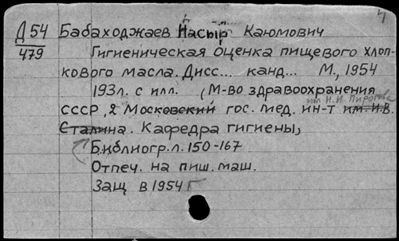 4
Д54 Бабаходжаев Насыр Каюмович
479 Гигиеническая оценка пищевого хлоп-
кового масла. Дисс... канд... М., 1954
193л. с илл. (М-во здравоохранения
им Н.И. Пирогова
СССР, 2 Московский гос. мед. ин-т им. И.В.
Сталина. Кафедра гигиены,
Библиогр. л. 150-167
Отпеч. на пиш. маш.
Защ в 1954 г